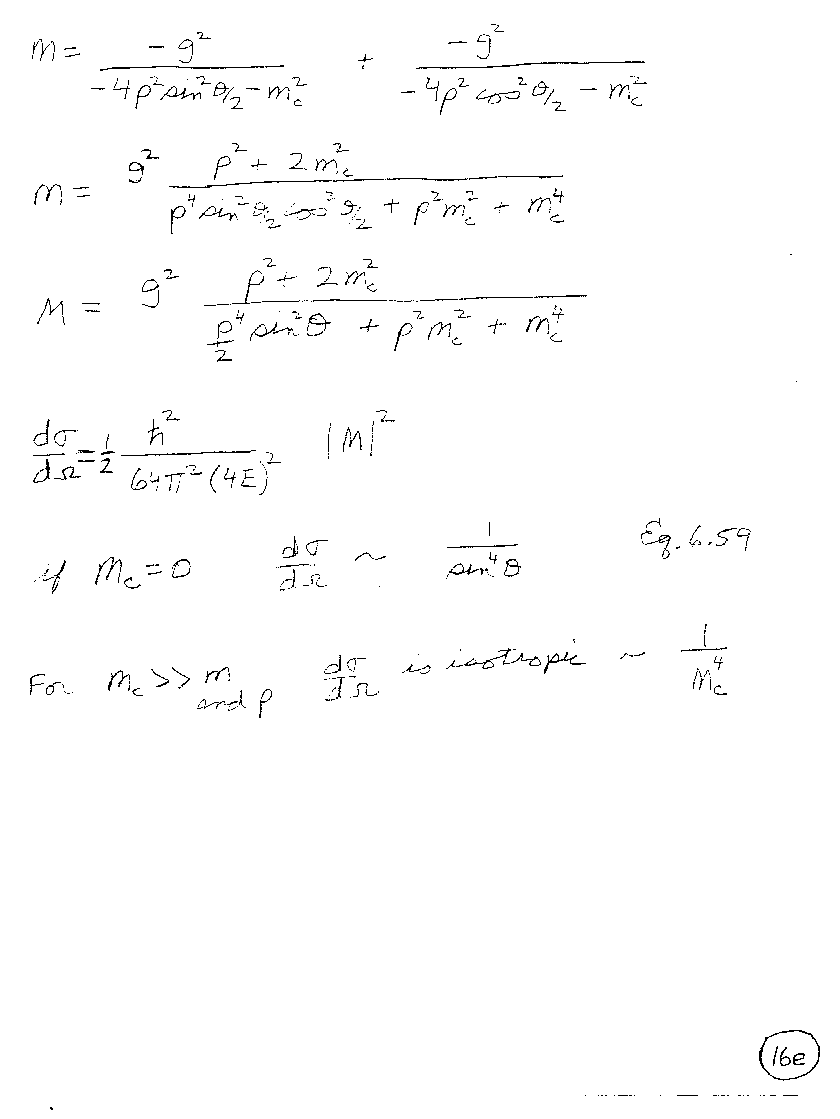 M = -g² / (-4p² sin² θ/2 - m_c²) + -g² / (-4p² cos² θ/2 - m_c²)
M = g² (p² + 2m_c²) / (p⁴ sin² θ/2 cos² θ/2 + p² m_c² + m_c⁴)
M = g² (p² + 2m_c²) / (p⁴/2 sin² θ + p² m_c² + m_c⁴)
dσ/dΩ = 1/2 ħ² / (64π² (4E)²) |M|²
if M_c = 0 dσ/dΩ ~ 1 / sin⁴ θ Eq. 6.59
For M_c >> m and p dσ/dΩ is isotropic ~ 1 / M_c⁴
16e